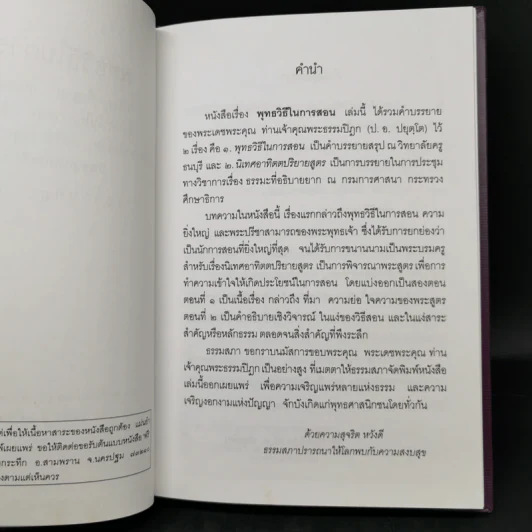 คำนำ
หนังสือเรื่อง พุทธวิธีในการสอน เล่มนี้ ได้รวมคำบรรยาย
ของพระเดชพระคุณ ท่านเจ้าคุณพระธรรมปิฎก (ป. อ. ปยุตฺโต) ไว้
๒ เรื่อง คือ ๑. พุทธวิธีในการสอน เป็นคำบรรยายสรุป ณ วิทยาลัยครู
ธนบุรี และ ๒. นิเทศอาทิตตปริยายสูตร เป็นการบรรยายในการประชุม
ทางวิชาการเรื่อง ธรรมะที่อธิบายยาก ณ กรมการศาสนา กระทรวง
ศึกษาธิการ
บทความในหนังสือนี้ เรื่องแรกกล่าวถึงพุทธวิธีในการสอน ความ
ยิ่งใหญ่ และพระปรีชาสามารถของพระพุทธเจ้า ซึ่งได้รับการยกย่องว่า
เป็นนักการสอนที่ยิ่งใหญ่ที่สุด จนได้รับการขนานนามเป็นพระบรมครู
สำหรับเรื่องนิเทศอาทิตตปริยายสูตร เป็นการพิจารณาพระสูตร เพื่อการ
ทำความเข้าใจให้เกิดประโยชน์ในการสอน โดยแบ่งออกเป็นสองตอน
ตอนที่ ๑ เป็นเนื้อเรื่อง กล่าวถึง ที่มา ความย่อ ใจความของพระสูตร
ตอนที่ ๒ เป็นคำอธิบายเชิงวิจารณ์ ในแง่ของวิธีสอน และในแง่สาระ
สำคัญหรือหลักธรรม ตลอดจนสิ่งสำคัญที่พึงระลึก
ธรรมสภา ขอกราบนมัสการขอบพระคุณ พระเดชพระคุณ ท่าน
เจ้าคุณพระธรรมปิฎก เป็นอย่างสูง ที่เมตตาให้ธรรมสภาจัดพิมพ์หนังสือ
เล่มนี้ออกเผยแพร่ เพื่อความเจริญแพร่หลายแห่งธรรม และความ
เจริญงอกงามแห่งปัญญา จักบังเกิดแก่พุทธศาสนิกชนโดยทั่วกัน
ด้วยความสุจริต หวังดี
ธรรมสภาปรารถนาให้โลกพบกับความสงบสุข
เพื่อให้เนื้อหาสาระของหนังสือถูกต้อง
เผยแพร่ ขอให้ติดต่อขอรับต้นแบบหนังสือ
กระทึก อ.สามพราน จ.นครปฐม
งตามแต่เห็นควร